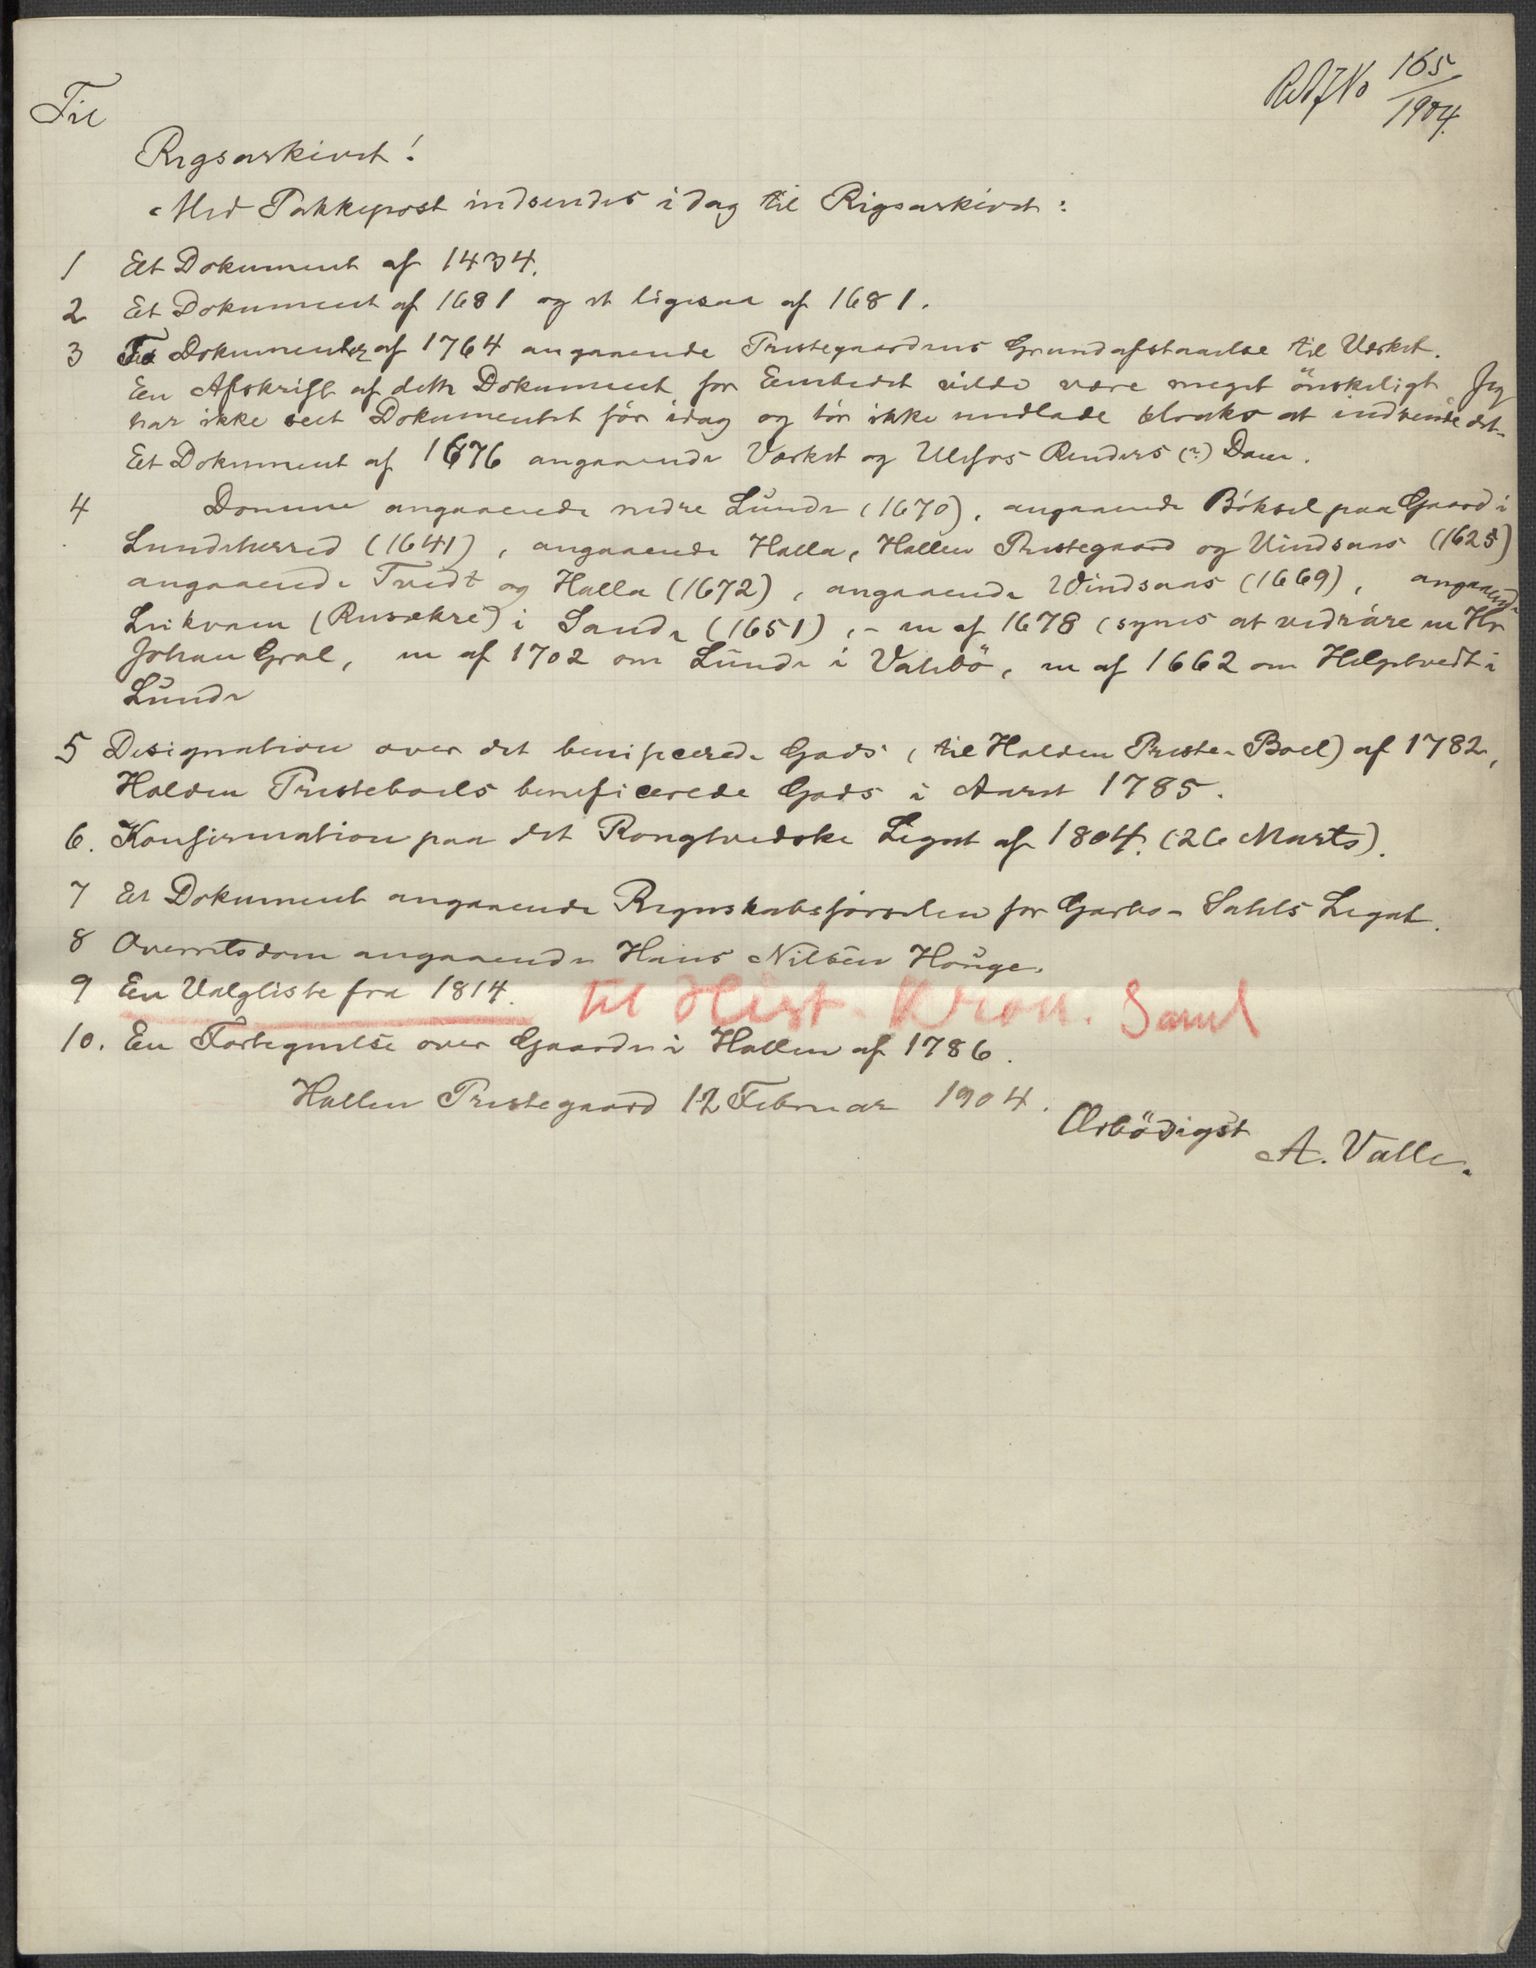 RAJNo 165/1904.
Til
Rigsarkivet!
Med Pakkepost indsendes i dag til Rigsarkivet:
1 Et Dokument af 1434.
2 Et Dokument af 1681 og et ligesaa af 1681.
3 To Dokumenter af 1764 angaaende Prestegaardens Grundafstaaelse til Værket.
En Afskrift af dette Dokument for Embedet vilde være meget önskeligt Jeg
har ikke seet Dokumentet för idag og tör ikke undlade straks at indsende det
Et Dokument af 1676 angaaende Værket og Ulefos Renders (?) Dam.
4 Domme angaaende nedre Lunde (1670), angaaende Böksel paa Gaard i
Lundeherred (1641), angaaende Halla, Hollen Prestegaard og Vindsaas (1625)
angaaende Tvedt og Halla (1672), angaaende Vindsaas (1669), angaaende
Leikvam (Rusækre) i Sande (1651), – en af 1678 (synes at vedröre en Hr
Johan Gral, en af 1702 om Lunde i Valebö, en af 1662 om Helgetvedt i
Lunde
5 Designation over det benificerede Gods (til Holden Preste-Boel) af 1782,
Holden Presteboels beneficerede Gods i Aaret 1785.
6. Konfirmation paa det Rongtvedske Legat af 1804. (26 Marts).
7 Et Dokument angaaende Regnskabsförselen for Garbo-Sahls Legat.
8 Overretsdom angaaende Hans Nilsen Houge.
9 En Valgliste fra 1814. til Hist. Kron. Saml
10. En Fortegnelse over Gaarde i Hollen af 1786.
Hollen Prestegaard 12 Februar 1904.
Ærbödigst
A. Valle.